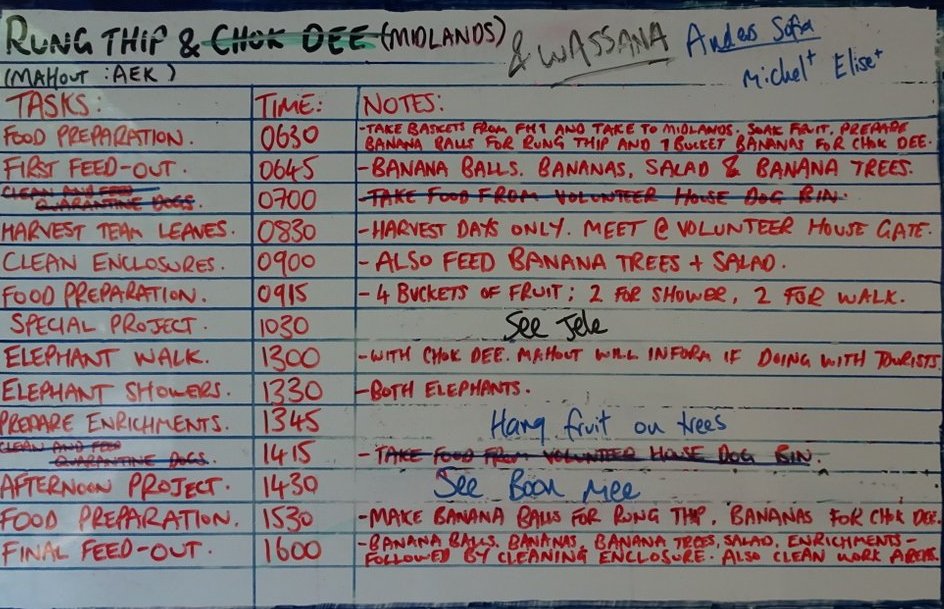 RUNG THIP & CHOK DEE (MIDLANDS) & WASSANA Andes Sofia
(MAHOUT : AEK) Michel+ Elise+
TASKS: TIME: NOTES:
FOOD PREPARATION. 0630 -TAKE BASKETS FROM FH1 AND TAKE TO MIDLANDS. SOAK FRUIT. PREPARE
BANANA BALLS FOR RUNG THIP AND 1 BUCKET BANANAS FOR CHOK DEE.
FIRST FEED-OUT. 0645 -BANANA BALLS. BANANAS, SALAD & BANANA TREES.
CLEAN AND FEED
QUARANTINE DOGS. 0700 -TAKE FOOD FROM VOLUNTEER HOUSE DOG BIN.
HARVEST TEAM LEAVES. 0830 -HARVEST DAYS ONLY. MEET @ VOLUNTEER HOUSE GATE.
CLEAN ENCLOSURES. 0900 - ALSO FEED BANANA TREES + SALAD.
FOOD PREPARATION. 0915 - 4 BUCKETS OF FRUIT; 2 FOR SHOWER, 2 FOR WALK.
SPECIAL PROJECT. 1030 See Jele
ELEPHANT WALK. 1300 -WITH CHOK DEE. MAHOUT WILL INFORM IF DOING WITH TOURISTS.
ELEPHANT SHOWERS. 1330 -BOTH ELEPHANTS.
PREPARE ENRICHMENTS. 1345 Hang fruit on trees
CLEAN AND FEED
QUARANTINE DOGS. 1415 - TAKE FOOD FROM VOLUNTEER HOUSE DOG BIN.
AFTERNOON PROJECT. 1430 See Boon Mee
FOOD PREPARATION. 1530 -MAKE BANANA BALLS FOR RUNG THIP. BANANAS FOR CHOK DEE.
FINAL FEED-OUT. 1600 -BANANA BALLS. BANANAS, BANANA TREES, SALAD, ENRICHMENTS-
FOLLOWED BY CLEANING ENCLOSURE. ALSO CLEAN WORK AREAS.